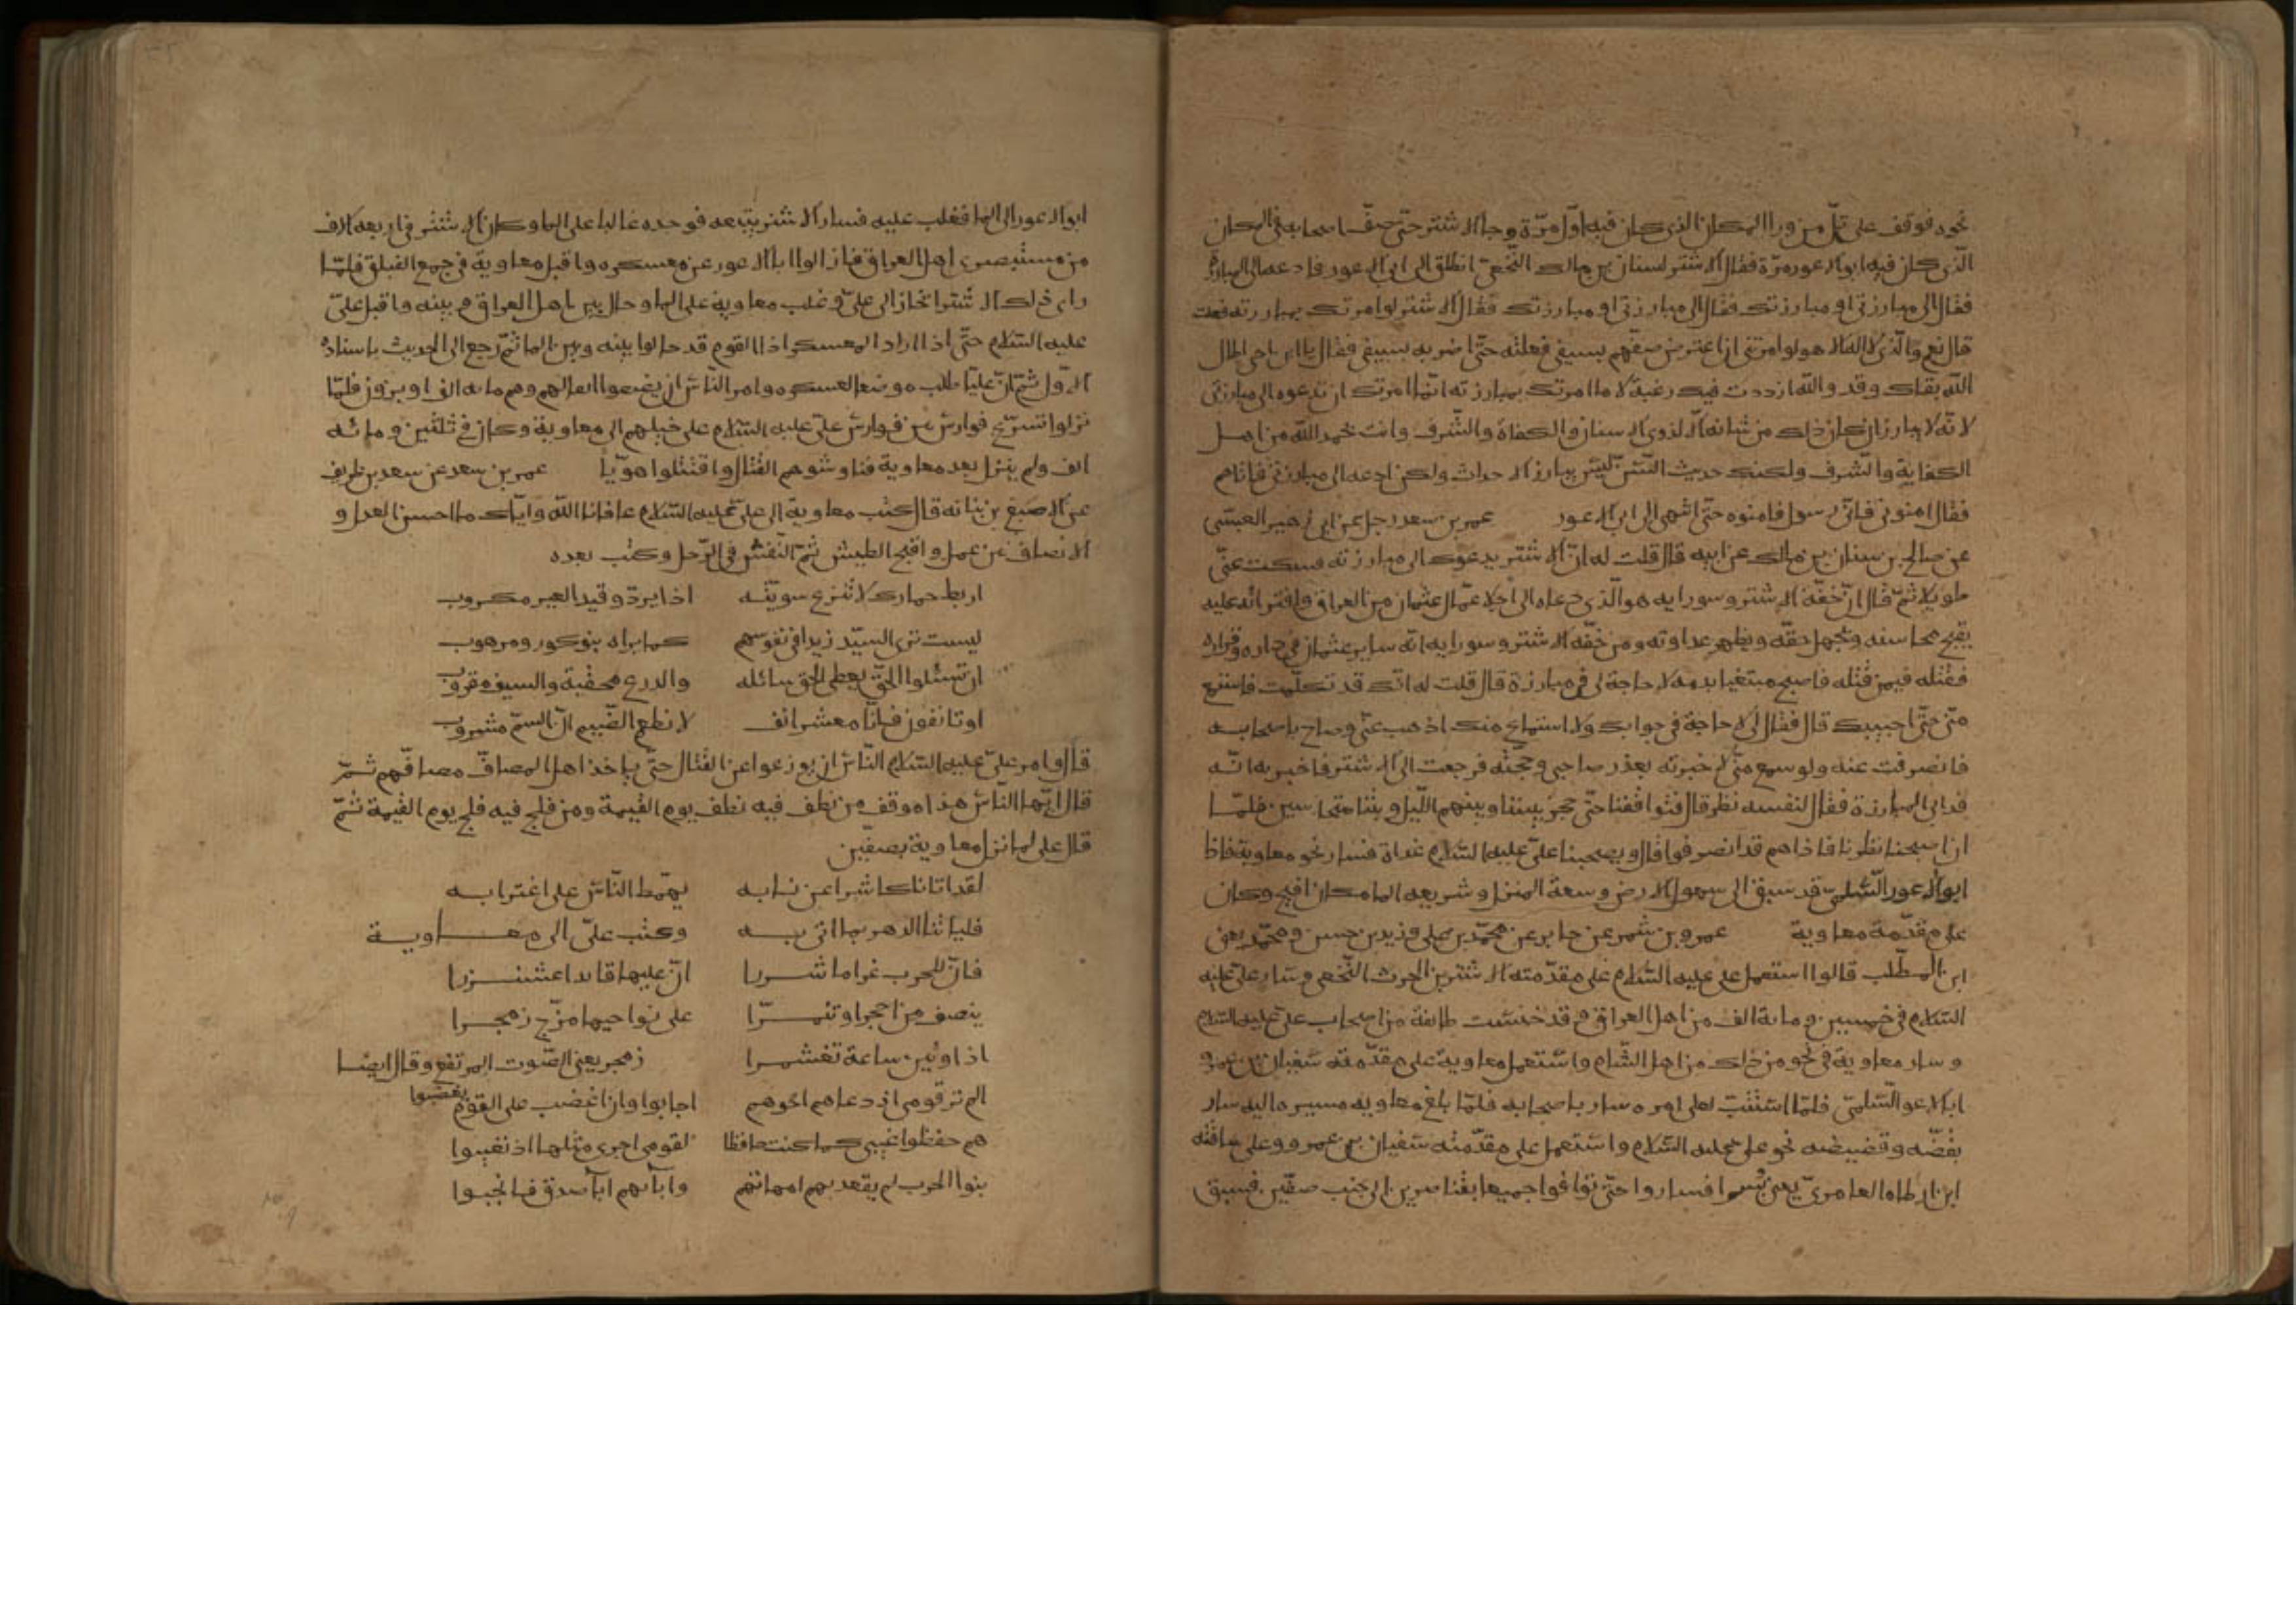 نحوه فوقف على تلّ من ورا المكان الذى كان فيه اوّل مرّة وجا الاشتر حتّى صفّ اصحابه فى المكان
الّذى كان فيه ابو الاعور مرّة فقال الاشتر لسنان بن مالك النّخعىّ انطلق الى ابى الاعور فادعه الى المبارزة
فقال الى مبارزتى او مبارزتك فقال الى مبارزتى او مبارزتك فقال الاشتر لو امرتك بمبارزته فعلت
قال نعم والّذى لا اله الا هو لو امرتنى ان اعترض صفّهم بسيفى فعلته حتّى اضربه بسيفى فقال يا ابن اخى اطال
الله بقاك وقد والله ازددت فيك رغبة لا ما امرتك بمبارزته انّما امرتك ان تدعوه الى مبارزتى
لانّه لا يبارز ان كان ذلك من شانه الا لذوى الاسنان والكفاة والشّرف وانت بحمد الله من اهل
الكفاية والشّرف ولكنك حديث السّنّ ليس يبارز الاحداث ولكن ادعه الى مبارزتى فاتاهم
فقال امنونى فانّى رسول فامنوه حتّى انتهى الى ابى الاعور عمر بن سعد رجل عن ابى زهير العبسّى
عن صالح بن سنان بن مالك عن ابيه قال قلت له انّ الاشتر يدعوك الى مبارزته فسكت عنّى
طويلا ثمّ قال ان خفّة الاشتر وسو رايه هو الّذى دعاه الى اجلا عمّال عثمان من العراق وافترائه عليه
يقبح محاسنه ويجهل حقّه ويظهر عداوته ومن خفّه الاشتر وسو رايه انّه سار بر عثمان فى داره وقراره
فقتله فيمن قتله فاصبح مبتغيا بدمه لا حاجة لى فى مبارزة قال قلت له انّك قد تكلّمت فاستمع
منّى حتّى اجيبك قال فقال لى لا حاجة فى جوابك ولا استماع منك اذهب عنّى وصاح باصحابه
فانصرفت عنه ولو سمع منّى لاخبرته بعذر صاحبى وحجّته فرجعت الى الاشتر فاخبرته انّه
قد ابى المبارزة فقال لنفسه نظر قال فتواقفنا حتّى حجز بيننا وبينهم اللّيل وبتنا متحارسين فلمّا
ان اصبحنا نظرنا فاذا هم قد انصرفوا قال ويصبحنا علىّ عليه السّلام غداة فسار نحو معاوية فاذا
ابو الاعور السّلمى قد سبق الى سهولة الارض وسعة المنزل وشريعه الما مكان افيح وكان
على مقدّمة معاوية عمرو بن شمر عن جابر عن محمّد بن على وزيد بن حسن ومحمّد يعنى
ابن المطّلب قالوا استعمل على عليه السّلام على مقدّمته الاشتر بن الحرث النّخعى وسار علىّ عليه
السّلام فى خمسين ومائة الف من اهل العراق وقد خنست طائفة من اصحاب علىّ عليه السّلام
وسار معاوية فى نحو من ذلك من اهل الشّام واستعمل معاوية على مقدّمته سفيان بن عمرو
ابا الاعور السّلمىّ فلمّا استتبّ لعلى امره سار باصحابه فلمّا بلغ معاوية مسيره اليه سار
بقضّه وقضيضه نحو على عليه السّلام واستعمل على مقدّمته سفيان بن عمرو وعلى ساقته
ابن ارطاه العامرىّ يعنى بسرا فساروا حتّى توافوا جميعا بقناصرين الى جنب صفّين فسبق
ابو الاعور الى الما فغلب عليه فسار الاشتر يتبعه فوجده غالبا على الما وكان الاشتر فى اربعه الاف
من مستبصرى اهل العراق فازالوا ابا الاعور عن معسكره واقبل معاوية فى جمع الفيلق فلمّا
راى ذلك الاشتر انحاز الى علىّ وغلب معاوية على الما وحال بين اهل العراق وبينه واقبل علىّ
عليه السّلام حتّى اذا اراد المعسكر اذا القوم قد حالوا بينه وبين الما ثمّ رجع الى الحديث باسناده
الاوّل ثمّ انّ عليّا طلب موضعا لعسكره وامر النّاس ان يضعوا اثقالهم وهم مائه الف او يزيدون فلمّا
نزلوا تسرّع فوارس من فوارس علىّ عليه السّلام على خيلهم الى معاوية وكان فى ثلثين ومائه
الف ولم ينزل بعد معاوية فناوشوهم القتال واقتتلوا هويّا عمر بن سعد عن سعد بن طريف
عن الاصبغ بن نباته قال كتب معاوية الى علىّ عليه السّلام عافانا الله وايّاك ما احسن العدل و
الانصاف من عمل واقبح الطيش ثمّ النّفش فى الرّجل وكتب بعده
اربط حمارك لا تنزع سويّته اذا يردّ وقيد العير مكروب
ليست ترى السيّد زيدا فى نفوسهم كما يراه بنو كوز ومرهوب
ان تسئلوا الحقّ يعطى الحق سائله والدرع محقبة والسيف مقروب
او تانفون فانّا معشر انف لا نطعم الضّيم انّ السمّ مشروب
قال وامر علىّ عليه السّلام النّاس ان يوزعوا عن القتال حتّى ياخذ اهل المصافّ مصافّهم ثمّ
قال ايّها النّاس هذا موقف من نطف فيه نطف يوم القيمة ومن فلج فيه فلج يوم القيمة ثمّ
قال على لما نزل معاوية بصفّين
لقد اتانا كاشرا عن نابه يهمّط النّاس على اغترابه
فلياتنا الدهر بما اتى به وكتب علىّ الى معاوية
فانّ للحرب غراما شررا انّ عليها قائدا عشنزرا
ينصف من احجرا وتنمّرا على نواحيها مزّج زمجرا
اذا ونين ساعة تغشمرا زمجر يعنى الصّوت المرتفع وقال ايضا
الم تر قومى اذ دعاهم اخوهم اجابوا وان اغضب على القوم يغضبوا
هم حفظوا غيبى كما كنت حافظا لقومى اجرى مثلها اذ تغيبوا
بنوا الحرب لم يقعد بهم امهاتهم وابآئهم ابآ صدق فانجبوا